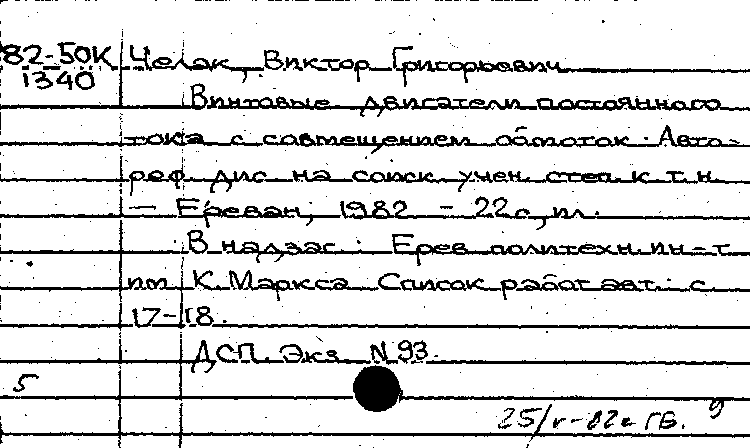 82-50К Челак, Виктор Григорьевич
1340
Винтовые двигатели постоянного
тока с совмещением обмоток. Авто-
реф. дис. на соиск. учен. степ. к. т. н.
— Ереван, 1982 - 22 с., ил.
В надзаг.: Ерев. политехн. ин-т
им. К. Маркса. Список работ авт.: с.
17-18.
ДСП. Экз. N 93.
5
25/V-82г ГБ. 9